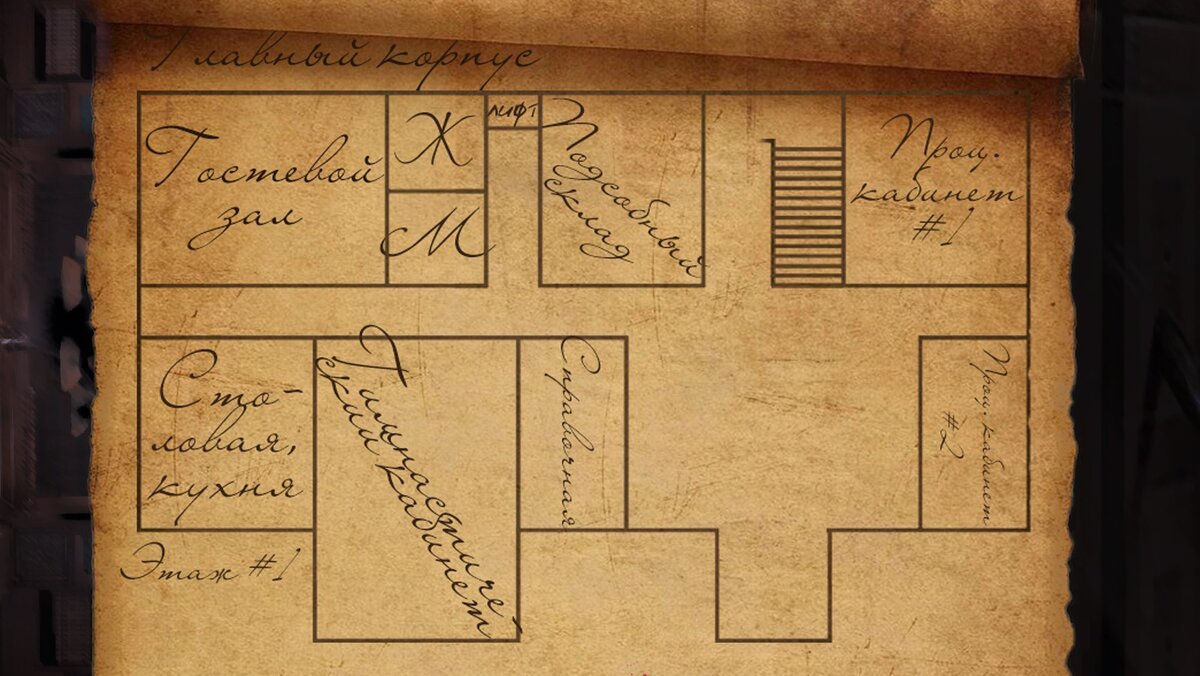 Главный корпус
Гостевой
зал
Ж
М
лифт
Подсобный
склад
Проц.
кабинет
#1
Сто-
ловая,
кухня
Гимнастиче-
ский кабинет
Справочная
Проц. кабинет
#2
Этаж #1